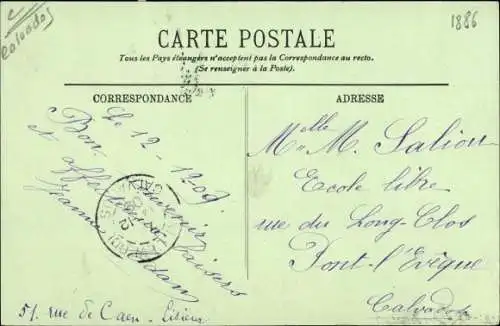 Calvados
1886
CARTE POSTALE
Tous les Pays étrangers n'acceptent pas la Correspondance au recto.
(Se renseigner à la Poste).
CORRESPONDANCE
ADRESSE
Le 12-12-09
Bon souvenir
et affectueux baisers
Jeanne
51, rue de Caen - Lisieux
CALVADOS
Melle M. Salion
Ecole libre
rue du Long-Clos
Pont-l'Evêque
Calvados